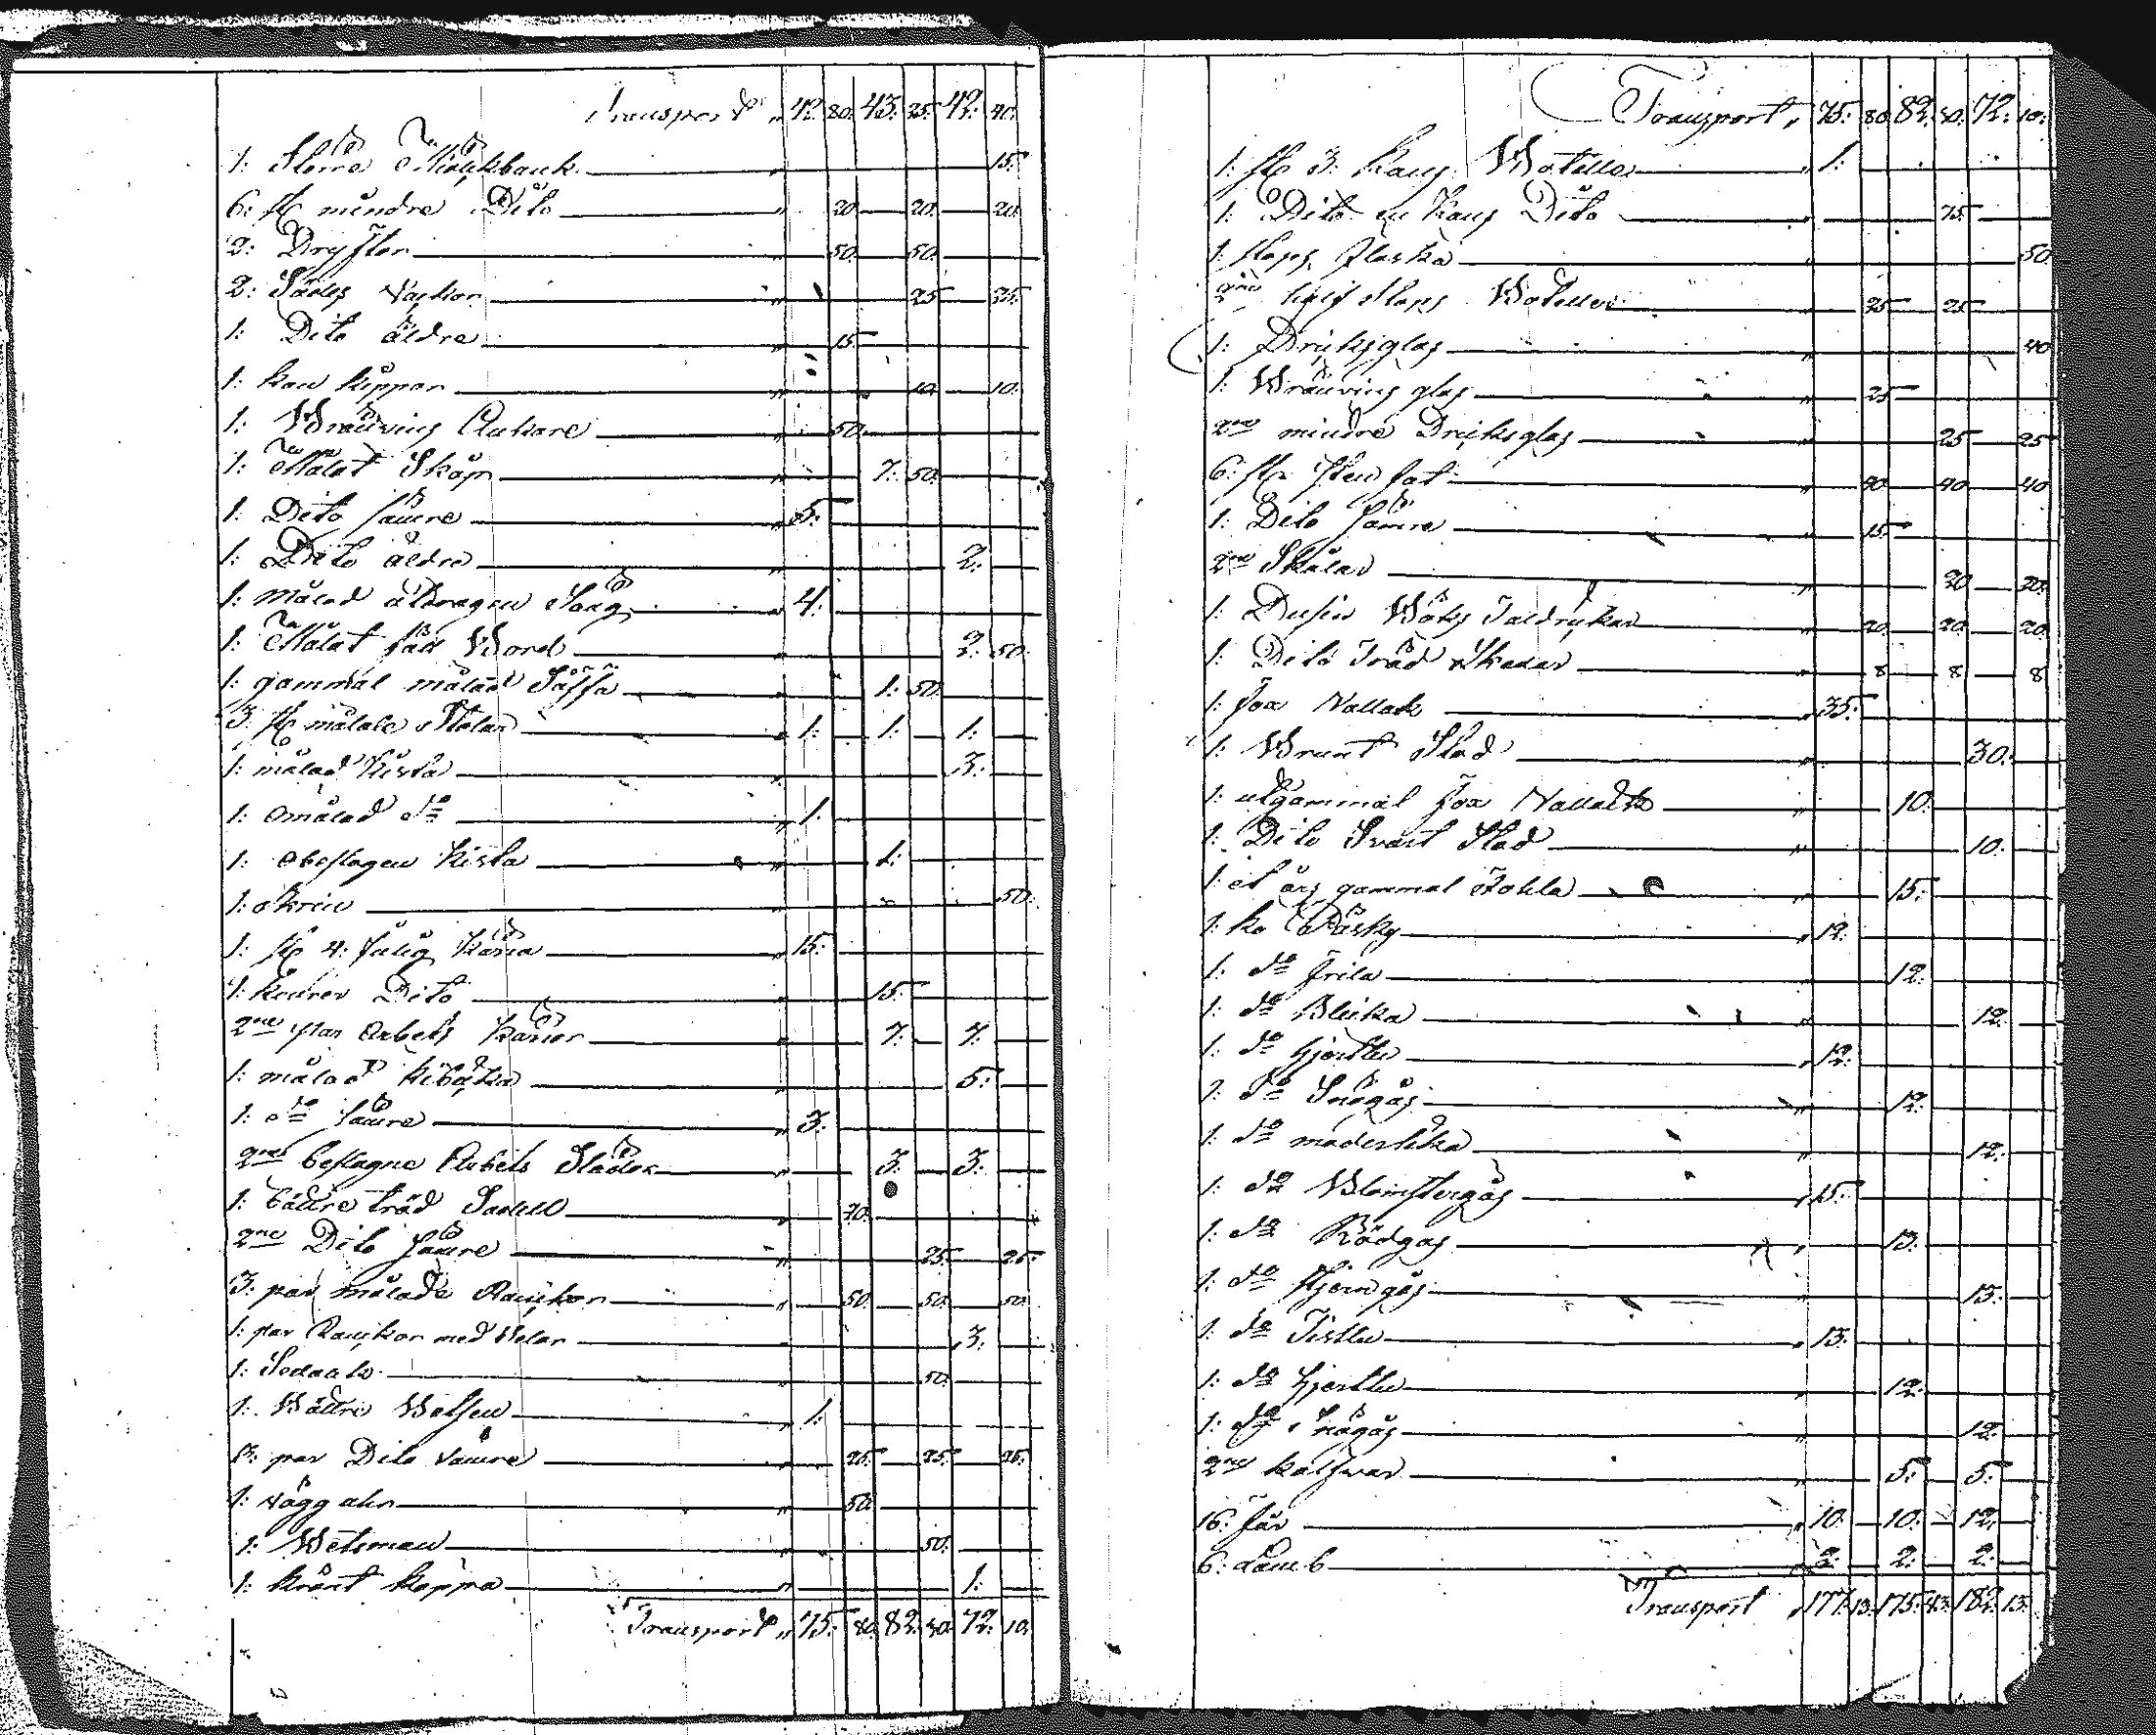 Transport „ 42. 80. 43. 35. 42. 40.
1: Större Mjölkbunk 15.
6: st mindre Dito „ 20 20. 20
2: Dryfter „ 50. 50.
2: Sädes „ 25 25
1: Dito äldre „ 15
1: kar kippor „ 10. 10.
1: Bränvins Ankare „ 50.
1: Målat Skåp „ 7. 50.
1: Dito sämre „ 5.
1: Dito äldre „ 2.
1: Målad utdragen Säng „ 4.
1: Målat fäll Bord „ 2. 50.
1: gammal målad Såffa „ 1. 50.
3: st målade Stolar „ 1. 1. 1.
1: målad Kista „ 3.
1: omålad do „ 1.
1: obeslagen Kista „ 1.
1: skrin 50.
1: st 4: Julig Kärra „ 15.
1: Dito „ 15.
2ne par Arbets Kärror „ 7. 7.
1: målad „ 5.
1: do sämre „ 3.
2ne beslagne Arbets Slädor „ 3. 3.
1: bättre träd Sadel „ 70.
2ne Dito sämre „ 25 25
3: par målade „ 50. 50. 50.
1: par med „ 3.
1: „ 50.
1: Bättre Betsel „ 1.
3: par Dito sämre „ 25 25 25.
1: väggalr „ 50.
1: Betsman „ 50.
1: koppa „ 1.
Transport „ 75. 80. 82. 50. 72. 10.
Transport „ 75. 80. 82. 50. 72. 10.
1: st 3: Kans Boteller „ 1.
1: Dito en Kans Dito „ 75
1: stops flaska „ 50.
2ne half stops Boteller „ 25 25
1: Dricksglas „ 40
1: Bränvins glas „ 25
2ne mindre Dricksglas „ 25 25
6: st sten fat „ 40 40 40
1: Dito sämre „ 15
2ne Skålar „ 20 20.
1: Dusin Taldrickar „ 20 20 20
1: Dito Träd Skedar „ 8 8 8
1: fox Vallak „ 35.
1: Brunt Stod „ 30.
1: utgammal fox Vallack „ 10.
1: Dito Svart Stod „ 10.
1: et års gammal „ 15.
1: ko „ 12.
1: do Frila „ 12.
1: do Blicka „ 12
1: do Hjertlu „ 12.
1: do Snögås „ 12.
1: do „ 12.
1: do Blomstergås „ 15.
1: do Rödgås „ 13.
1: do Stjerngås „ 13.
1: do Tistlu „ 13.
1: do Hjertlu „ 12.
1: do Snögås „ 12.
2ne kalfvar „ 5. 5.
16: får „ 10. 10. 12.
6: Lam 2. 2. 2.
Transport „ 177. 13. 175. 43. 182. 13.